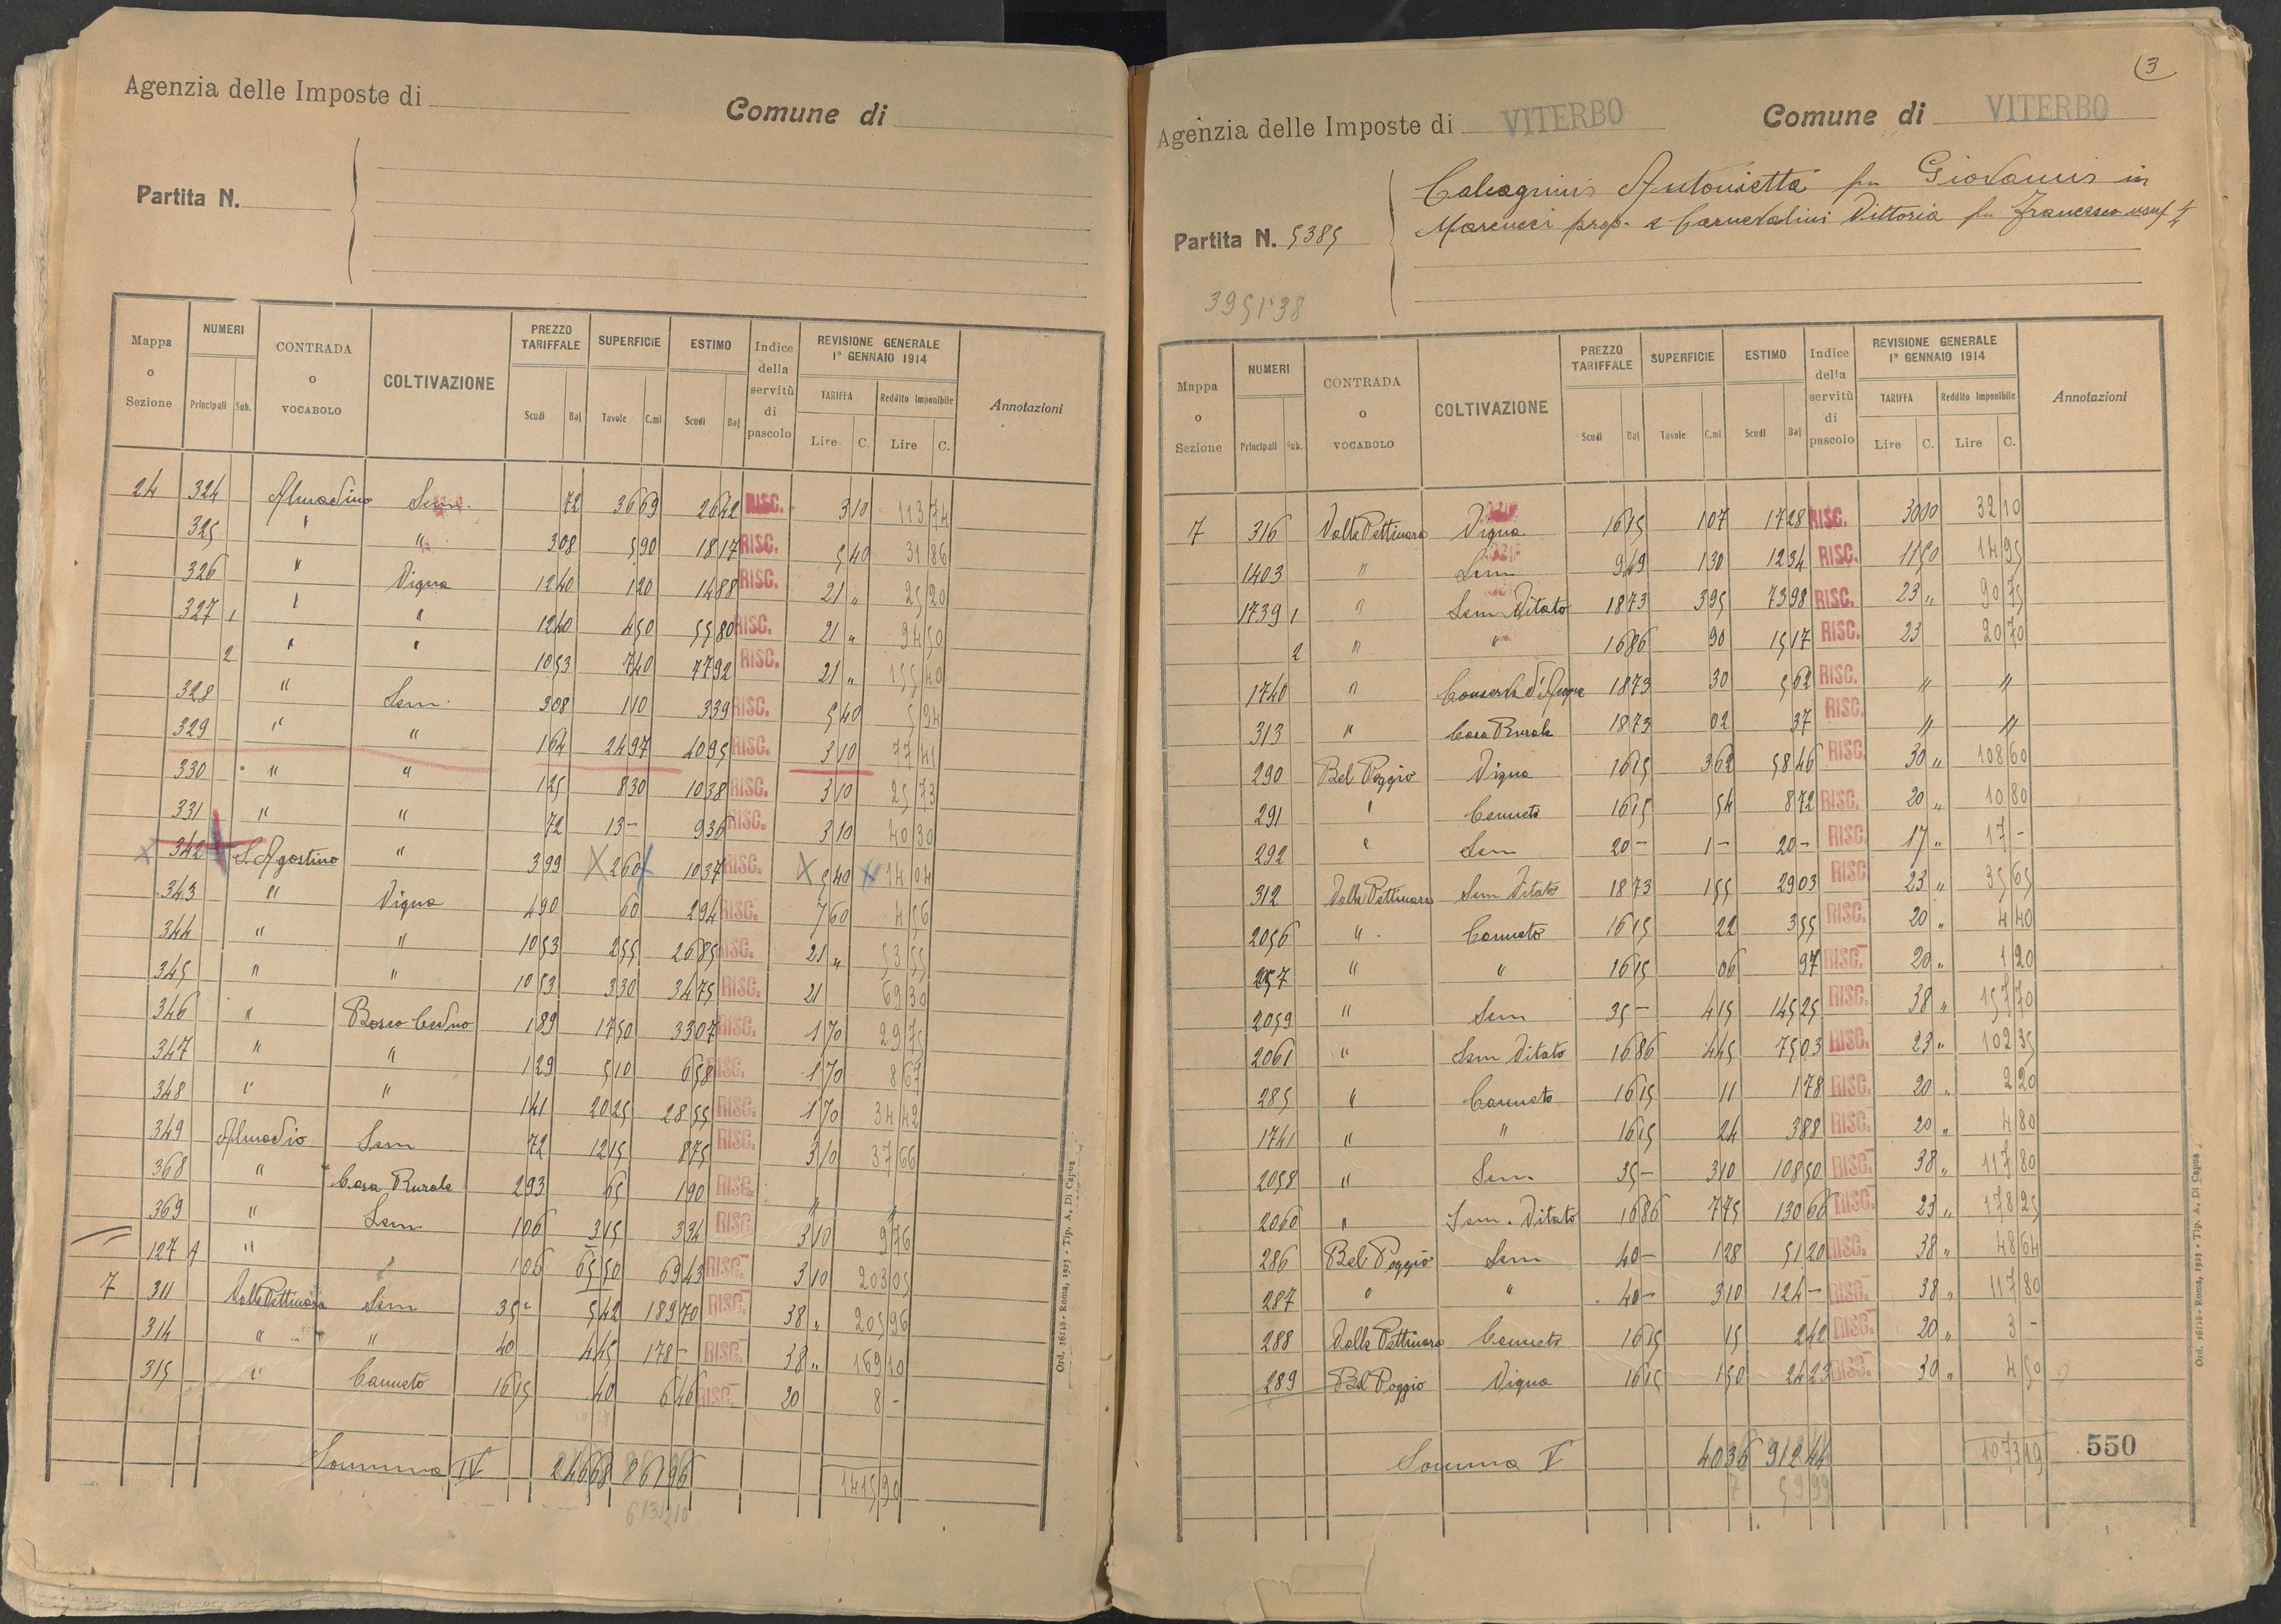 Agenzia delle Imposte di
Comune di
Partita N.
Mappa o Sezione | NUMERI Principali Sub. | CONTRADA o VOCABOLO | COLTIVAZIONE | PREZZO TARIFFALE Scudi Baj | SUPERFICIE Tavole C.mi | ESTIMO Scudi Baj | Indice della servitù di pascolo | REVISIONE GENERALE 1° GENNAIO 1914 TARIFFA Lire C. Reddito Imponibile Lire C. | Annotazioni
24 324 Almadino Sem. 72 36 69 26 42 RISC. 3 10 113 74
325 " " 3 08 5 90 18 17 RISC. 5 40 31 86
326 " Vigna 12 40 1 20 14 88 RISC. 21 " 25 20
327 1 " " 12 40 4 50 55 80 RISC. 21 " 94 50
2 " " 10 53 7 40 77 92 RISC. 21 " 155 40
328 " Sem. 3 08 1 10 3 39 RISC. 5 40 5 94
329 " " 1 64 24 97 40 95 RISC. 3 10 77 41
330 " " 1 25 8 30 10 38 RISC. 3 10 25 73
331 " " 72 13 - 9 36 RISC. 3 10 40 30
342 S. Agostino " 3 99 2 60 10 37 RISC. 5 40 14 04
343 " Vigna 4 90 60 2 94 RISC. 7 60 4 56
344 " " 10 53 2 55 26 85 RISC. 21 " 53 55
345 " " 10 53 3 30 34 75 RISC. 21 69 30
346 " Bosco Ceduo 1 89 17 50 33 07 RISC. 1 70 29 75
347 " " 1 29 5 10 6 58 RISC. 1 70 8 67
348 " " 1 41 20 25 28 55 RISC. 1 70 34 42
349 Almadio Sem 72 12 15 8 75 RISC. 3 10 37 66
368 " Casa Rurale 2 93 65 1 90 RISC. " "
369 " Sem 1 06 3 15 3 34 RISC. 3 10 9 76
127 A " " 1 06 65 50 69 43 RISC. 3 10 203 05
7 311 Valle Pettinara Sem 35 - 5 42 189 70 RISC. 38 " 205 96
314 " " 40 4 45 178 - RISC. 38 " 169 10
315 " Canneto 16 15 40 6 46 RISC. 20 8 -
Somma IV 246 68 861 96 1415 90
Ord. 16118 - Roma, 1923 - Tip. A. Di Capua
3
Agenzia delle Imposte di VITERBO
Comune di VITERBO
Calcagnini Antonietta fu Giovanni in
Marcucci prop. e Carnevalini Vittoria fu Francesco usuf
Partita N. 5385
3951'38
Mappa o Sezione | NUMERI Principali Sub. | CONTRADA o VOCABOLO | COLTIVAZIONE | PREZZO TARIFFALE Scudi Baj | SUPERFICIE Tavole C.mi | ESTIMO Scudi Baj | Indice della servitù di pascolo | REVISIONE GENERALE 1° GENNAIO 1914 TARIFFA Lire C. Reddito Imponibile Lire C. | Annotazioni
7 316 Valle Pettinara Vigna 16 15 1 07 17 28 RISC. 30 00 32 10
1403 " Sem 9 49 1 30 12 34 RISC. 11 50 14 95
1739 1 " Sem Vitato 18 73 3 95 73 98 RISC. 23 " 90 75
2 " " 16 86 90 15 17 RISC. 23 20 70
1740 " Conserva d'Acqua 18 73 30 5 62 RISC. " "
313 " Casa Rurale 18 73 02 37 RISC. " "
290 Bel Poggio Vigna 16 15 3 62 58 46 RISC. 30 " 108 60
291 " Canneto 16 15 54 8 72 RISC. 20 " 10 80
292 " Sem 20 - 1 - 20 - RISC. 17 " 17 -
312 Valle Pettinara Sem Vitato 18 73 1 55 29 03 RISC. 23 " 35 65
2056 " Canneto 16 15 22 3 55 RISC. 20 " 4 40
2057 " " 16 15 06 97 RISC. 20 " 1 20
2059 " Sem 35 - 4 15 145 25 RISC. 38 " 157 70
2061 " Sem Vitato 16 86 4 45 75 03 RISC. 23 " 102 35
285 " Canneto 16 15 11 1 78 RISC. 20 " 2 20
1741 " " 16 15 24 3 88 RISC. 20 " 4 80
2058 " Sem 35 - 3 10 108 50 RISC. 38 " 117 80
2060 " Sem. Vitato 16 86 7 75 130 66 RISC. 23 " 178 25
286 Bel Poggio Sem 40 - 1 28 51 20 RISC. 38 " 48 64
287 " " 40 - 3 10 124 - RISC. 38 " 117 80
288 Valle Pettinara Canneto 16 15 15 2 42 RISC. 20 " 3 -
289 Bel Poggio Vigna 16 15 1 50 24 23 RISC. 30 " 4 50
Somma V 40 36 912 44 1073 19
550
Ord. 16118 - Roma, 1923 - Tip. A. Di Capua